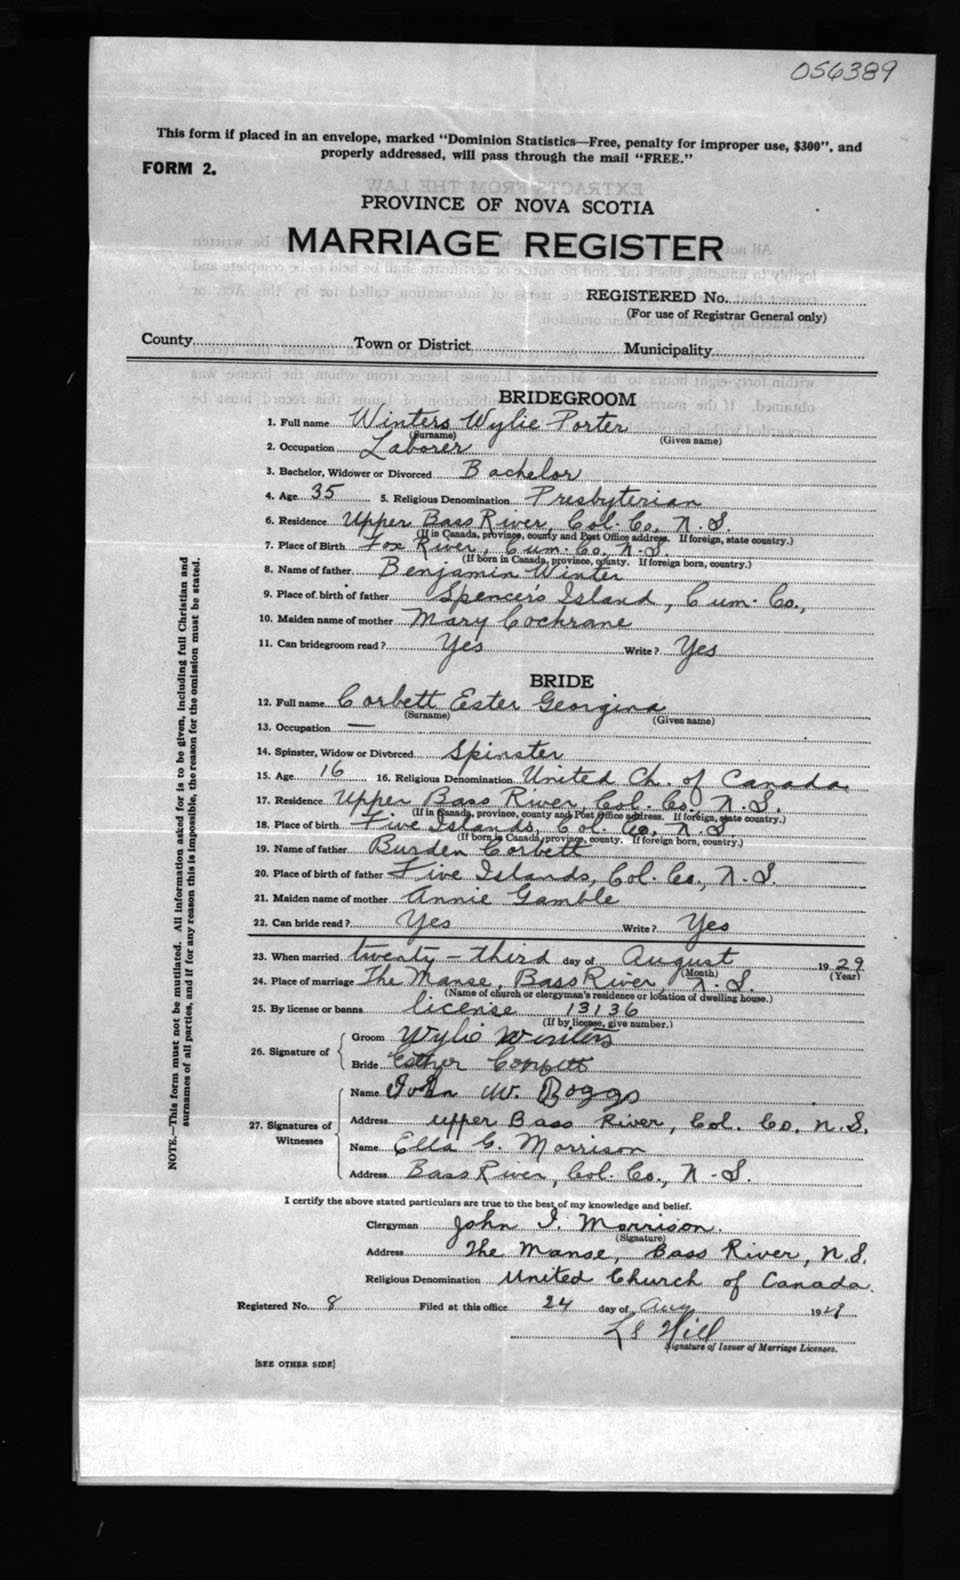 056389
This form if placed in an envelope, marked "Dominion Statistics—Free, penalty for improper use, $300", and
properly addressed, will pass through the mail "FREE."
FORM 2.
PROVINCE OF NOVA SCOTIA
MARRIAGE REGISTER
REGISTERED No.
(For use of Registrar General only)
County Town or District Municipality
BRIDEGROOM
1. Full name Winters Wylie Porter
(Surname) (Given name)
2. Occupation Laborer
3. Bachelor, Widower or Divorced Bachelor
4. Age 35 5. Religious Denomination Presbyterian
6. Residence Upper Bass River, Col. Co., N.S.
(If in Canada, province, county and Post Office address. If foreign, state country.)
7. Place of Birth Fox River, Cum. Co., N.S.
(If born in Canada, province, county. If foreign born, country.)
8. Name of father Benjamin Winter
9. Place of birth of father Spencers Island, Cum. Co.,
10. Maiden name of mother Mary Cochrane
11. Can bridegroom read? Yes Write? Yes
BRIDE
12. Full name Corbett Ester Georgina
(Surname) (Given name)
13. Occupation —
14. Spinster, Widow or Divorced Spinster
15. Age 16 16. Religious Denomination United Ch. of Canada
17. Residence Upper Bass River, Col. Co., N.S.
(If in Canada, province, county and Post Office address. If foreign, state country.)
18. Place of birth Five Islands, Col. Co., N.S.
(If born in Canada, province, county. If foreign born, country.)
19. Name of father Burden Corbett
20. Place of birth of father Five Islands, Col. Co., N.S.
21. Maiden name of mother Annie Gamble
22. Can bride read? Yes Write? Yes
23. When married twenty-third day of August 1929
(Month) (Year)
24. Place of marriage The Manse, Bass River, N.S.
(Name of church or clergyman's residence or location of dwelling house.)
25. By license or banns license 13136
(If by license, give number.)
26. Signature of
Groom Wylie Winters
Bride Esther Corbett
27. Signatures of Witnesses
Name John W. Boggs
Address Upper Bass River, Col. Co. N.S.
Name Ella G. Morrison
Address Bass River, Col. Co., N.S.
I certify the above stated particulars are true to the best of my knowledge and belief.
Clergyman John I. Morrison.
(Signature)
Address The Manse, Bass River, N.S.
Religious Denomination United Church of Canada.
Registered No. 8 Filed at this office 24 day of Aug 19
L S Hill
Signature of Issuer of Marriage Licenses.
[SEE OTHER SIDE]
NOTE.—This form must not be mutilated. All information asked for is to be given, including full Christian and
surnames of all parties, and if for any reason this is impossible, the reason for the omission must be stated.